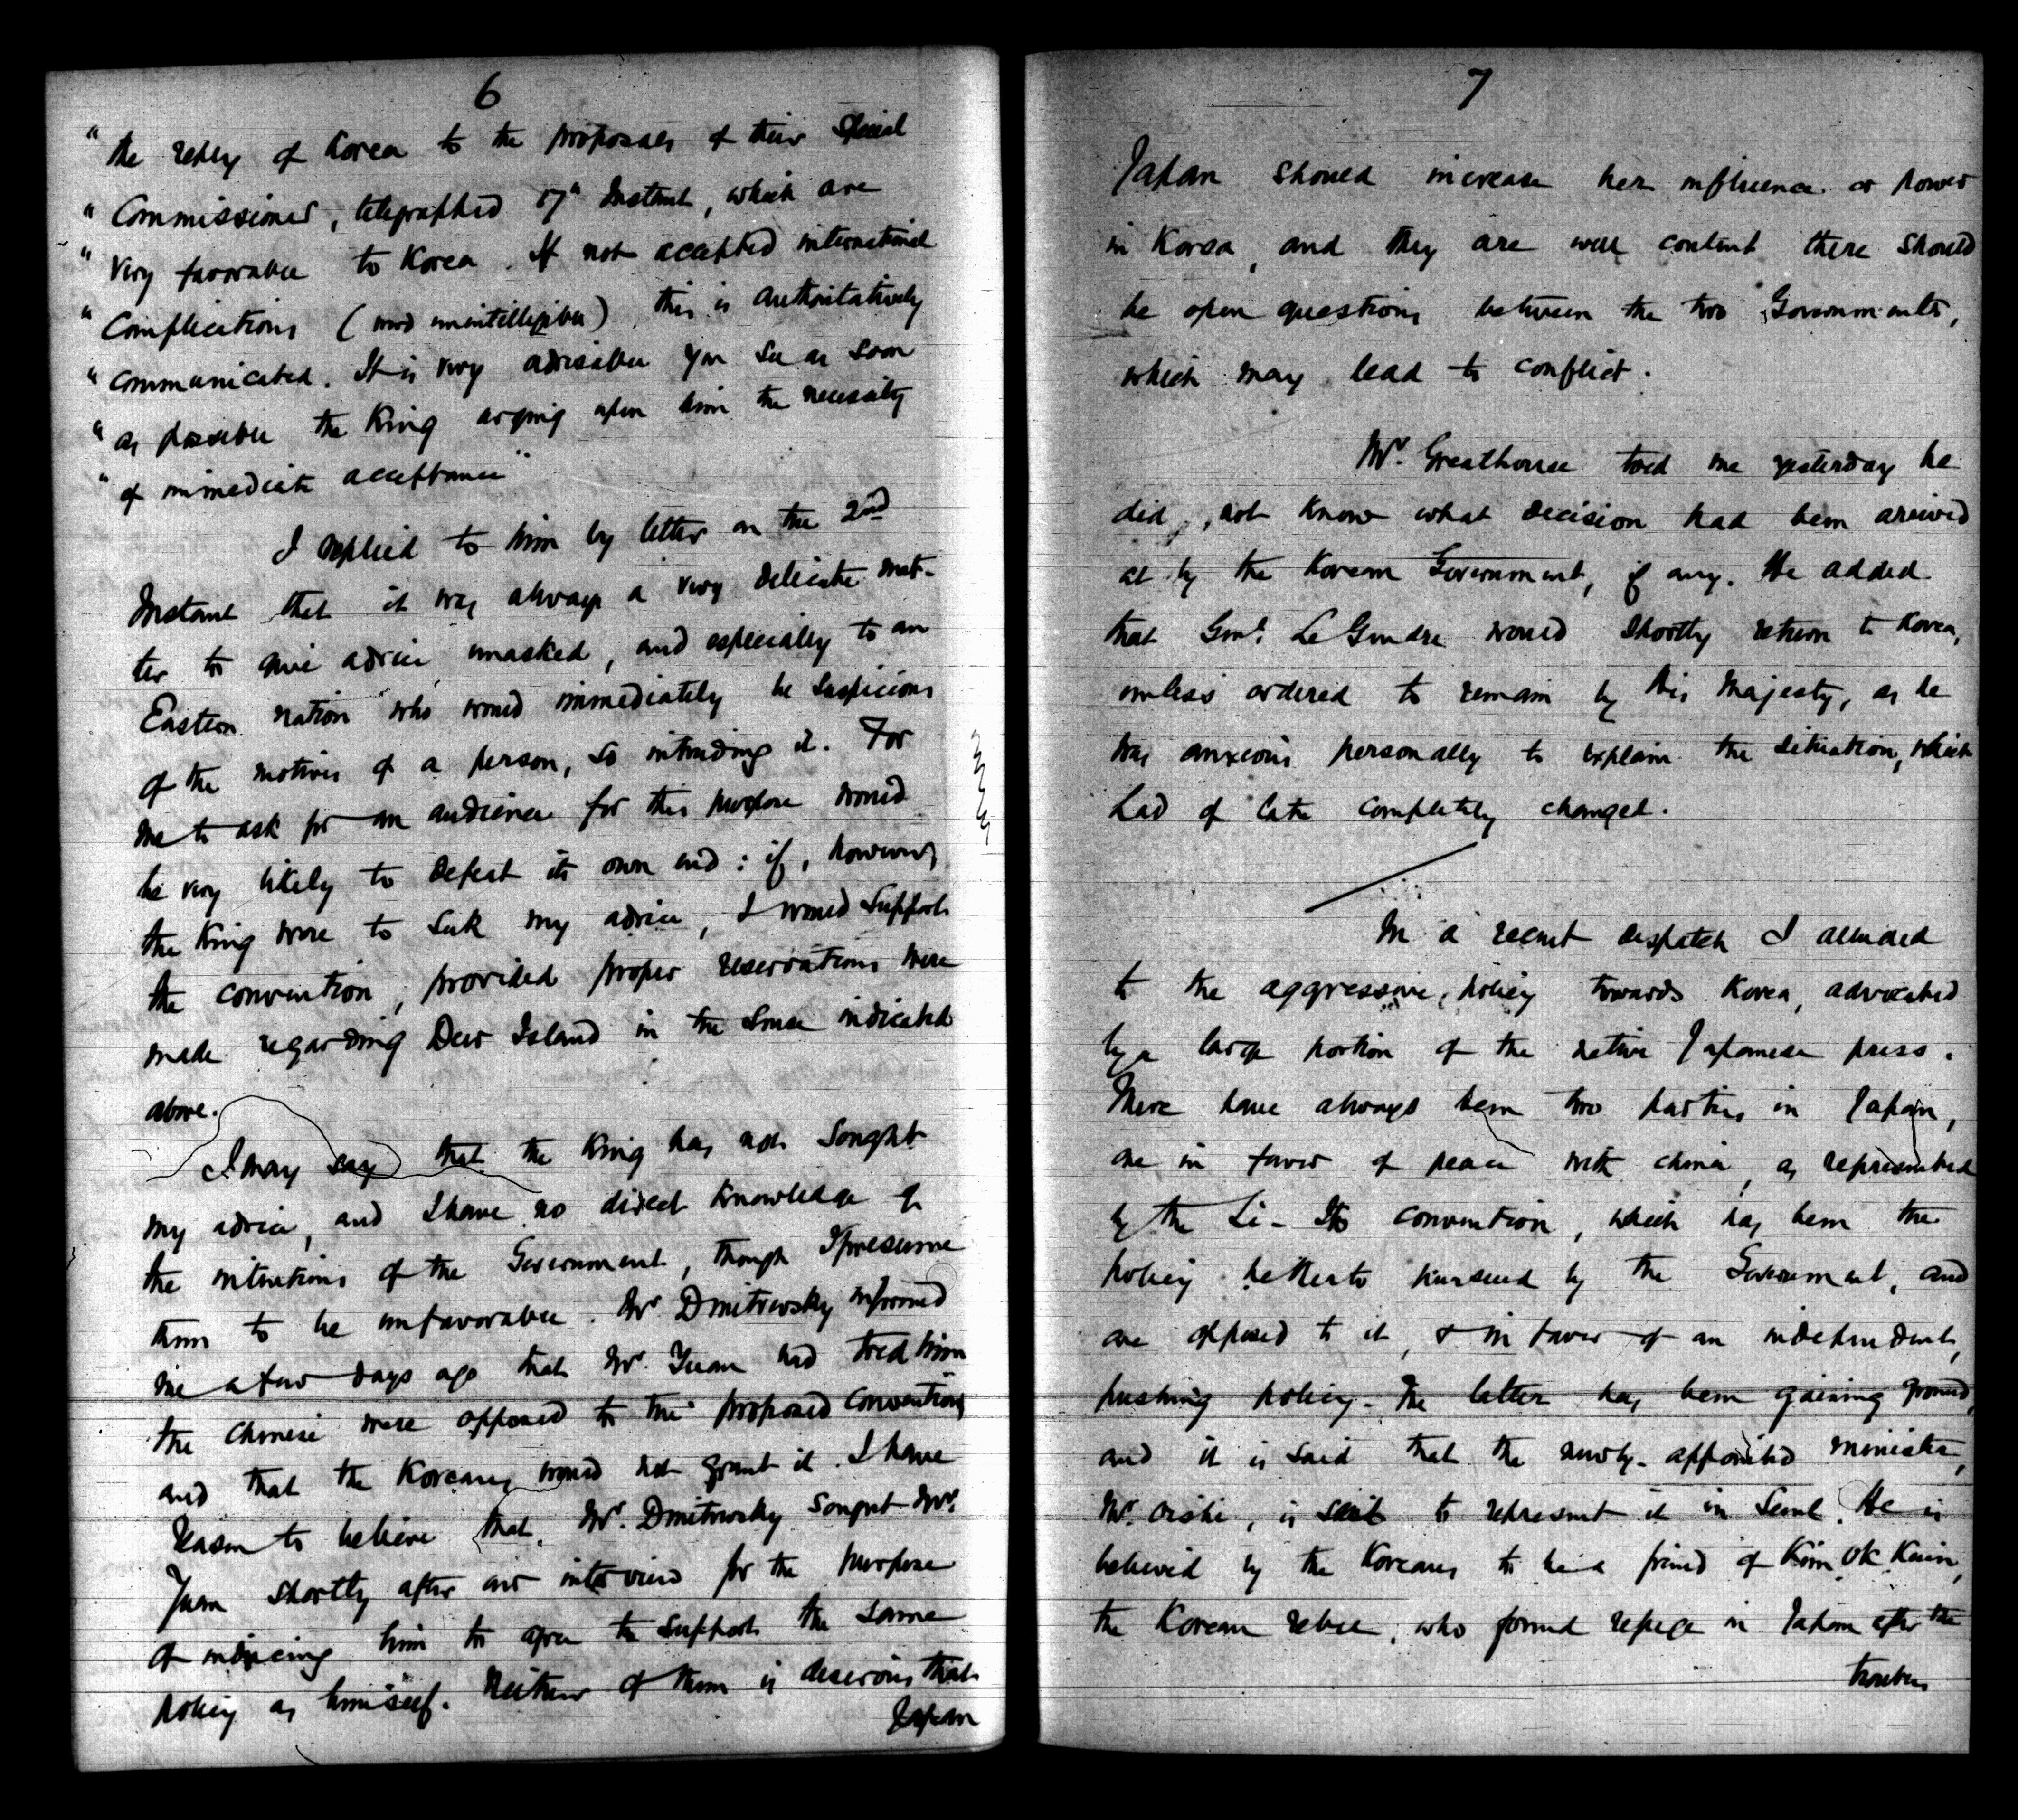 6
"the reply of Korea to the proposals of their Special
"Commissioner, telegraphed 17" Instant, which are
"very favorable to Korea. If not accepted international
"complications (word unintelligible), this is authoritatively
"communicated. It is very advisable you see as soon
"as possible the King urging upon him the necessity
"of immediate acceptance"
I replied to him by letter on the 2nd
Instant that it was always a very delicate mat-
ter to give advice unasked, and especially to an
Eastern nation who would immediately be suspicious
of the motives of a person, so intruding it. For
me to ask for an audience for this purpose would
be very likely to defeat its own end: if, however,
the King were to seek my advice, I would support
the convention, provided proper reservations were
made regarding Deer Island in the sense indicated
above.
I may say that the King has not sought
my advice, and I have no direct knowledge of
the intentions of the Government, though I presume
them to be unfavorable. Mr. Dmitrevsky informed
me a few days ago that Mr. Yuan had told him
the Chinese were opposed to the proposed convention,
and that the Koreans would not grant it. I have
reason to believe that Mr. Dmitrevsky sought Mr.
Yuan shortly after our interview for the purpose
of inducing him to agree to support the same
policy as himself. Neither of them is desirous that
Japan
7
Japan should increase her influence or power
in Korea, and they are well content there should
be open questions between the two Governments,
which may lead to conflict.
Mr. Greathouse told me yesterday he
did not know what decision had been arrived
at by the Korean Government, if any. He added
that Genl. LeGendre would shortly return to Korea,
unless ordered to remain by His Majesty, as he
was anxious personally to explain the situation, which
had of late completely changed.
In a recent despatch I alluded
to the aggressive policy towards Korea, advocated
by a large portion of the native Japanese press.
There have always been two parties in Japan,
one in favor of peace with China, as represented
by the Li-Ito convention, which has been the
policy hitherto pursued by the Government, and
one opposed to it, & in favor of an independent,
pushing policy. The latter has been gaining ground,
and it is said that the newly-appointed Minister,
Mr. Oishi, is sent to represent it in Seoul. He is
believed by the Koreans to be a friend of Kim Ok Kuin,
the Korean rebel, who found refuge in Japan after the
troubles